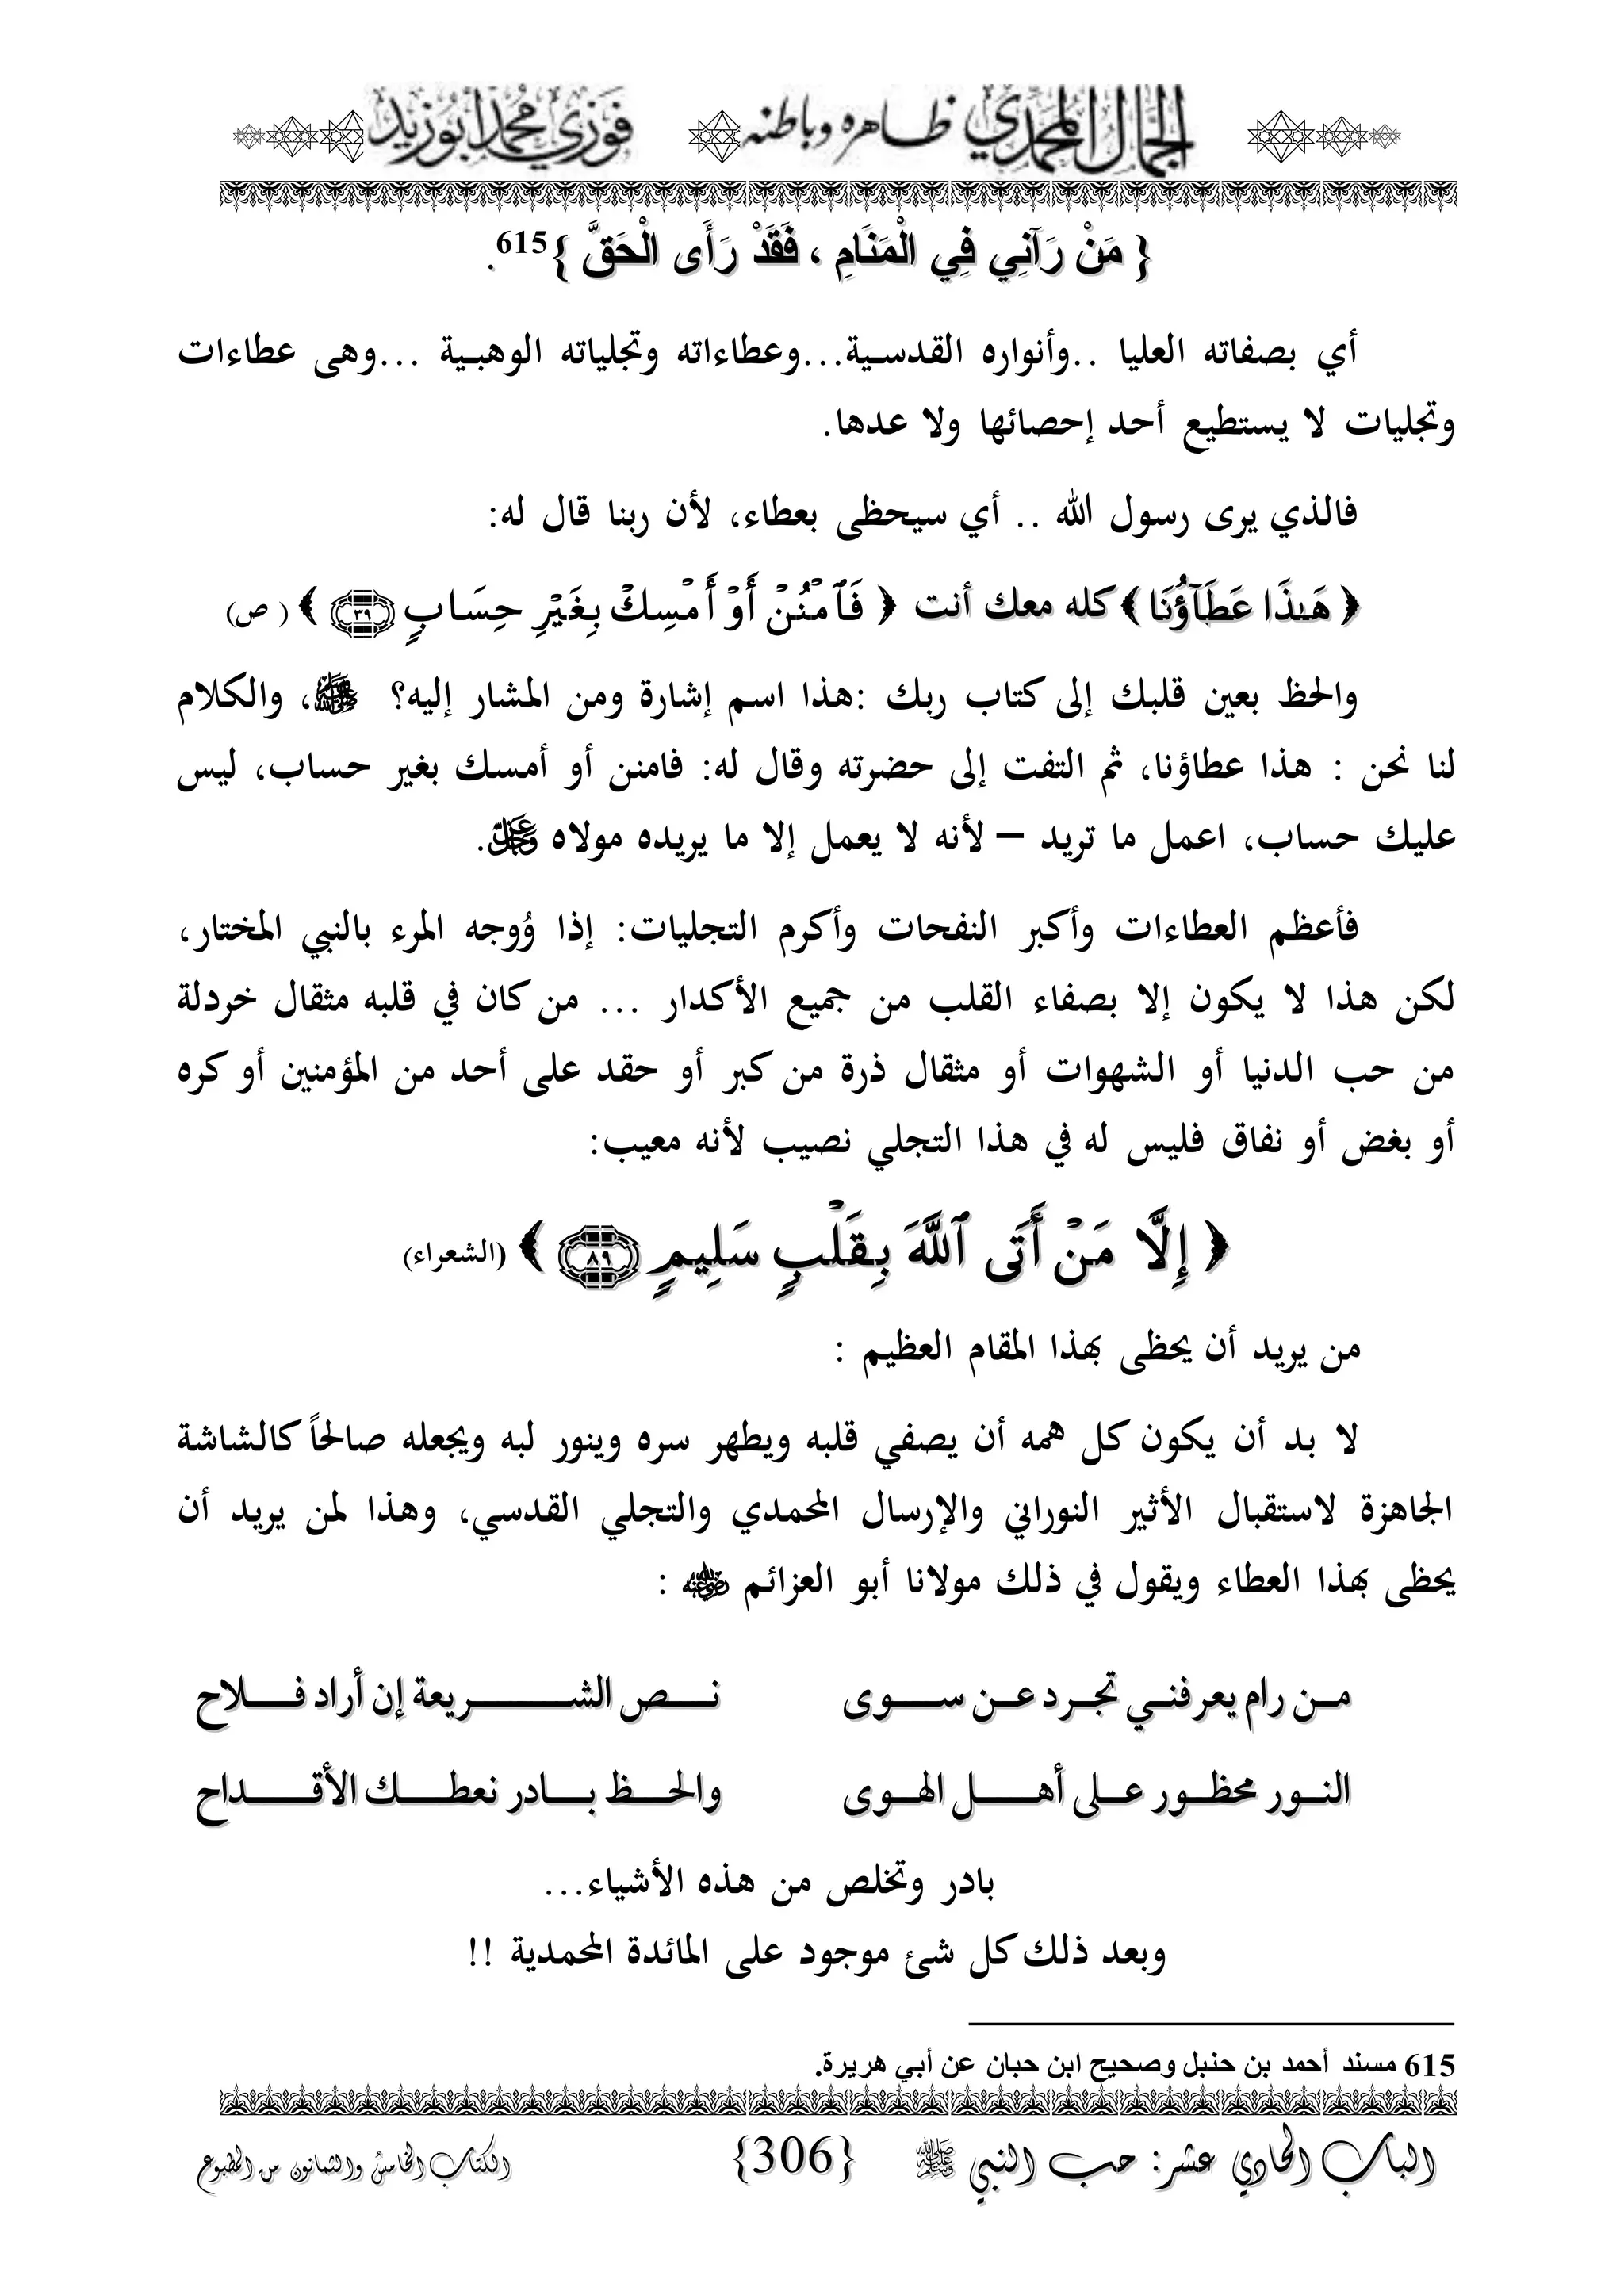 الجمال المحمدي ظاهره وباطنه فوزي محمد أبوزيد
{ مَنْ رَآنِي فِي الْمَنَامِ ، فَقَدْ رَأَى الْحَقَّ }615.
أي بصفاته العليا ..وأنواره القدسية...وعطاءاته وتجلياته الوهبية ...وهى عطاءات
وتجليات لا يستطيع أحد إحصائها ولا عدها.
فالذي يرى رسول الله .. أي سيحظى بعطاء، لأن ربنا قال له:
﴿ هَـٰذَا عَطَآؤُنَا ﴾ كله معك أنت ﴿ فَٱمۡنُنۡ أَوۡ أَمۡسِكۡ بِغَيۡرِ حِسَابٍ ٣٩ ﴾ ( ص)
والحظ بعين قلبك إلى كتاب ربك :هذا اسم إشارة ومن المشار إليه؟ ﷺ، والكلام
لنا نحن : هذا عطاؤنا، ثم التفت إلى حضرته وقال له: فامنن أو أمسك بغير حساب، ليس
عليك حساب، اعمل ما تريد – لأنه لا يعمل إلا ما يريده مولاه عز وجل.
فأعظم العطاءات وأكبر النفحات وأكرم التجليات: إذا وُوجه المرء بالنبي المختار،
لكن هذا لا يكون إلا بصفاء القلب من جميع الأكدار ... من كان في قلبه مثقال خردلة
من حب الدنيا أو الشهوات أو مثقال ذرة من كبر أو حقد على أحد من المؤمنين أو كره
أو بغض أو نفاق فليس له في هذا التجلي نصيب لأنه معيب:
﴿ إِلَّا مَنۡ أَتَى ٱللَّهَ بِقَلۡبٍ سَلِيمٍ ٨٩ ﴾ (الشعراء)
من يريد أن يحظى بهذا المقام العظيم :
لا بد أن يكون كل همه أن يصفي قلبه ويطهر سره وينور لبه ويجعله صالحاً كالشاشة
الجاهزة لاستقبال الأثير النوراني والإرسال المحمدي والتجلي القدسي، وهذا لمن يريد أن
يحظى بهذا العطاء ويقول في ذلك مولانا أبو العزائم رضي الله عنه :
من رام يعرفني تجرد عن سوى نص الشريعة إن أراد فلاح
النور محظور على أهل الهوى والحظ بادر نعطك الأقداح
بادر وتخلص من هذه الأشياء...
وبعد ذلك كل شئ موجود على المائدة المحمدية !!
615 مسند أحمد بن حنبل وصحيح ابن حبان عن أبي هريرة.
الباب الحادي عشر: حب النبي ﷺ {306} الكتاب الخامس والثمانون من المطبوع